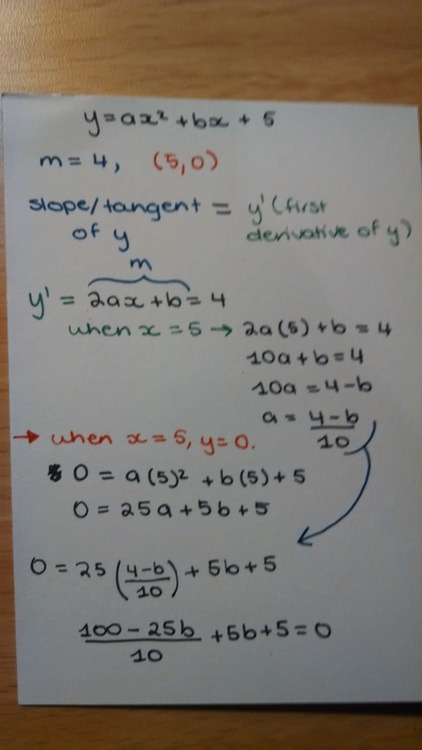 y = ax² + bx + 5
m = 4, (5,0)
slope/tangent = y' (first
of y derivative of y)
m
y' = 2ax + b = 4
when x = 5 → 2a(5) + b = 4
10a + b = 4
10a = 4 - b
a = (4-b)/10
→ when x = 5, y = 0.
0 = a(5)² + b(5) + 5
0 = 25a + 5b + 5
0 = 25 ((4-b)/10) + 5b + 5
(100 - 25b)/10 + 5b + 5 = 0